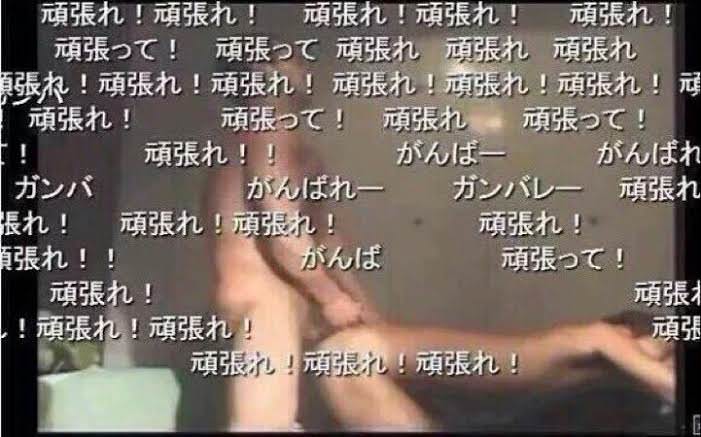 頑張れ！頑張れ！ 頑張れ！頑張れ！ 頑張れ！
頑張って！ 頑張って 頑張れ 頑張れ 頑張れ
頑張れ！頑張れ！頑張れ！ 頑張れ！頑張れ！頑張れ！
！ 頑張れ！ 頑張って！ 頑張れ 頑張って！
て！ 頑張れ！！ がんばー がんばれ
ガンバ がんばれー ガンバレー 頑張れ
張れ！ 頑張れ！頑張れ！ 頑張れ！
頑張れ！！ がんば 頑張って！
頑張れ！ 頑張れ
！頑張れ！頑張れ！ 頑張
頑張れ！頑張れ！頑張れ！